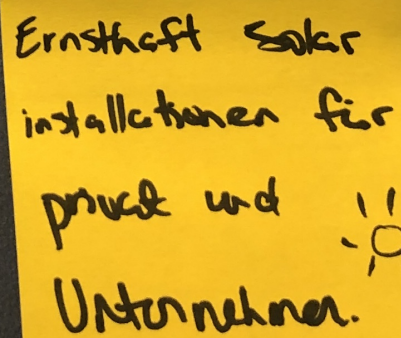 Ernsthaft Solar
installationen für
privat und
Unternehmen.